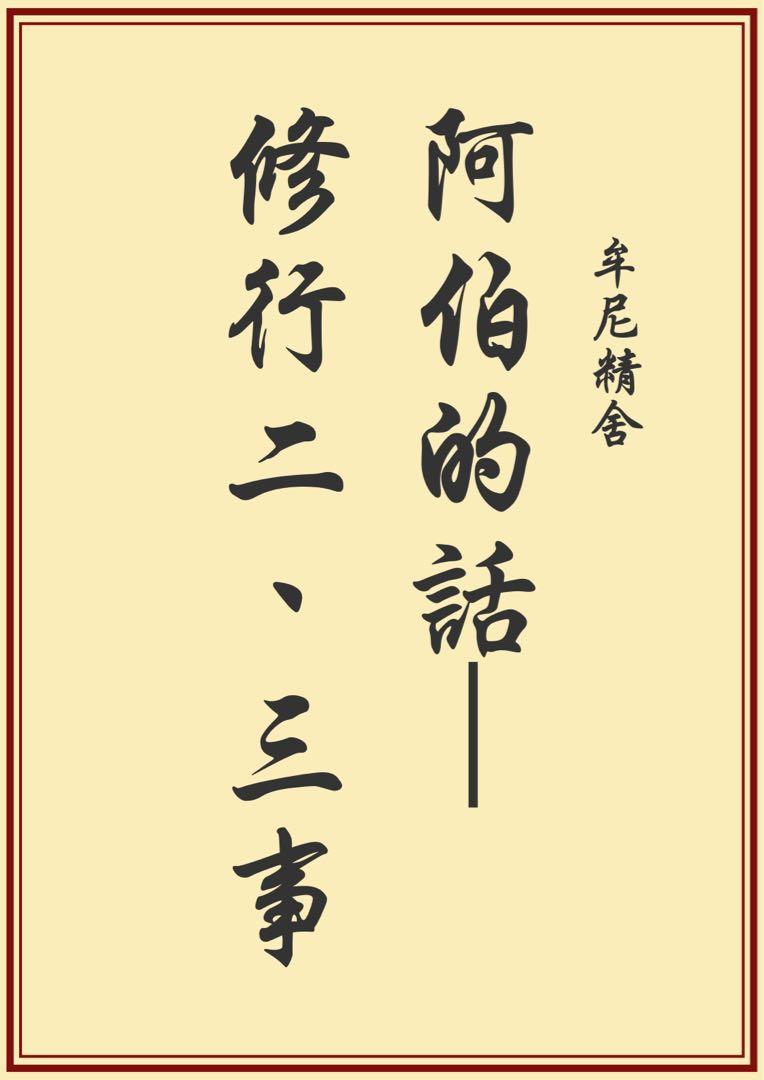 牟尼精舍
阿伯的話——
修行二、三事